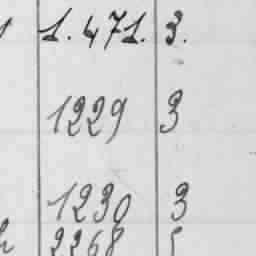 1.471. 3.
1229 3
1230 3
2268 5